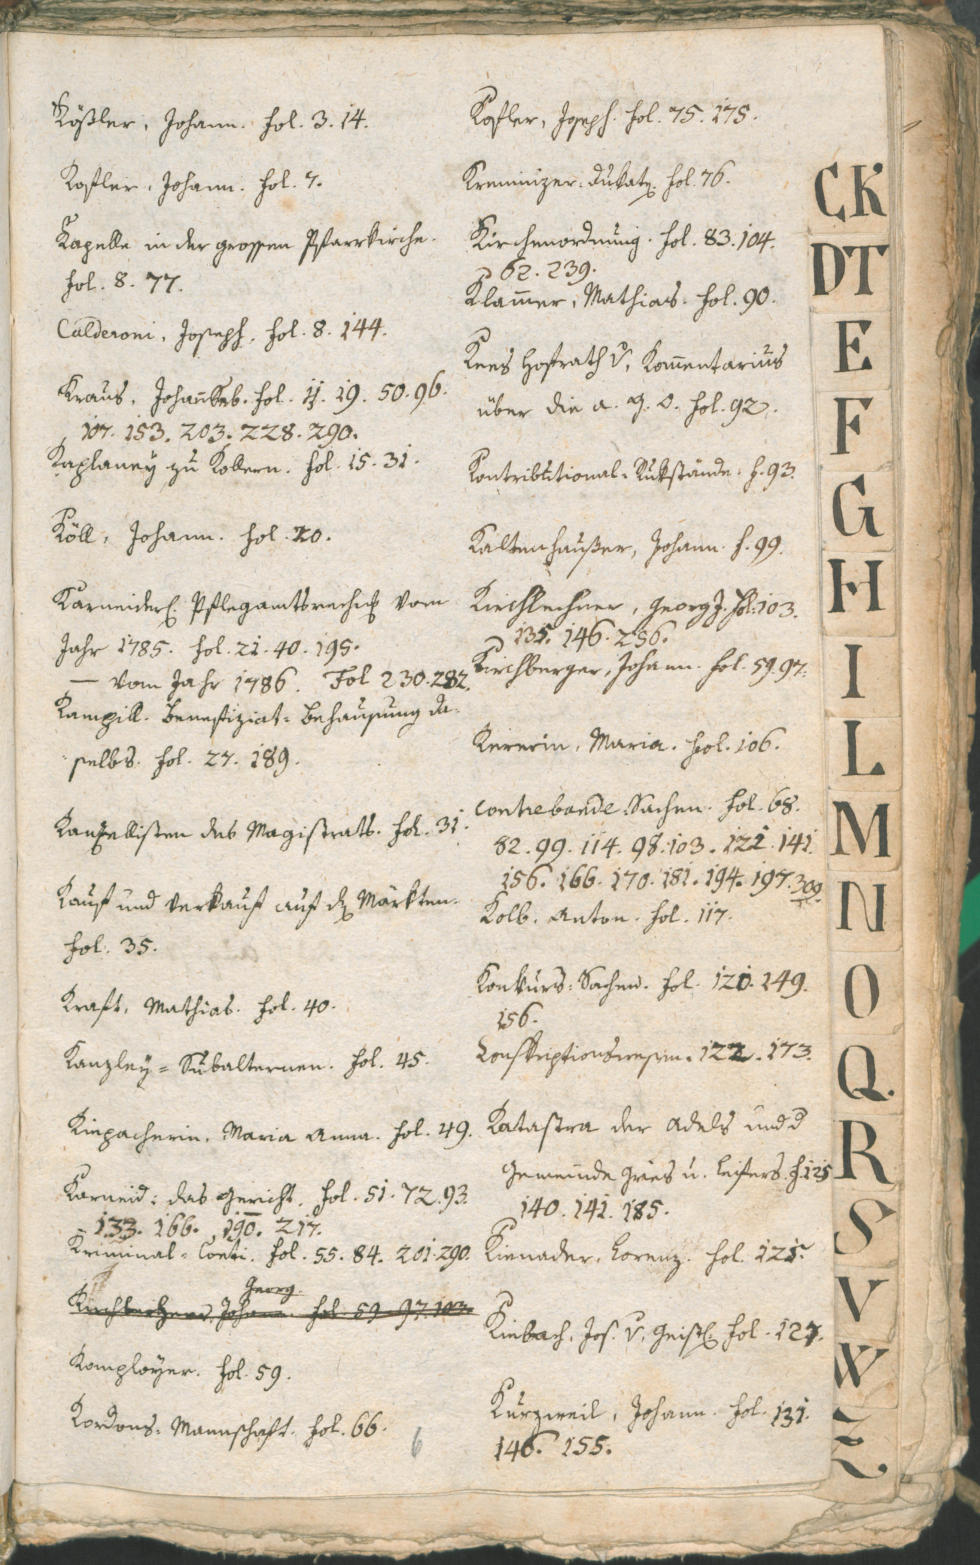 Kößler, Johann. fol. 3. 14.
Kofler, Johann. fol. 7.
Kapelle in der grossen Pfarrkirche.
fol. 8. 77.
Calderoni, Joseph. fol. 8. 144.
Kraus, Johann Seb. fol. 11. 19. 50. 96.
107. 153. 203. 228. 290.
Kaplaney zu Kollern. fol. 15. 31.
Köll, Johann. fol. 20.
Karneider. Pflegamtsrechng vom
Jahr 1785. fol. 21. 40. 195.
— vom Jahr 1786. Fol 230. 282.
Kampill. Benefiziat=Behausung da-
selbs. fol. 27. 189.
Kanzellisten des Magistrats. fol. 31.
Kauf und Verkauf auf den Märkten.
fol. 35.
Kraft, Mathias. fol. 40.
Kanzley=Subalternen. fol. 45.
Kiepacherin, Maria Anna. fol. 49.
Karneid: das Gericht. fol. 51. 72. 93.
133. 166. 190. 217.
Kriminal=Conti. fol. 55. 84. 201. 290.
Georg
Johann. fol. 59. 97. 103.
Komployer. fol. 59.
Kordons=Mannschaft. fol. 66.
6
Kofler, Joseph. fol. 75. 175.
Kremnizer=Dukaten. fol. 76.
Kirchenordnung. fol. 83. 104.
62. 239.
Klamer, Mathias. fol. 90.
Kees Hofrath v, Komentarius
über die a. G. O. fol. 92.
Kontributional=Rükstände. f. 93.
Kaltenhaußer, Johann. f. 99.
Kirchlechner, Georg J. fol: 103.
135. 146. 256.
Kirchberger, Johann. fol. 59. 97.
Kererin, Maria. fol. 106.
Contrebande Sachen. fol. 68.
82. 99. 114. 98. 103. 121. 141.
156. 166. 170. 181. 194. 197. 309.
Kolb. Anton. fol. 117.
Konkurs=Sachen. fol. 120. 149.
156.
Conskriptionswesen. 122. 173.
Katastra der Adels und d
Gemeinde Gries u. Leifers. f. 125
140. 141. 185.
Kienader, Lorenz. fol. 125.
Kiebach, Jos. v, Geistl. fol. 127.
Kurzweil, Johann. fol. 131.
146. 155.
CK
DT
E
F
G
H
I
L
M
N
O
Q.
R
S
V
W
Z